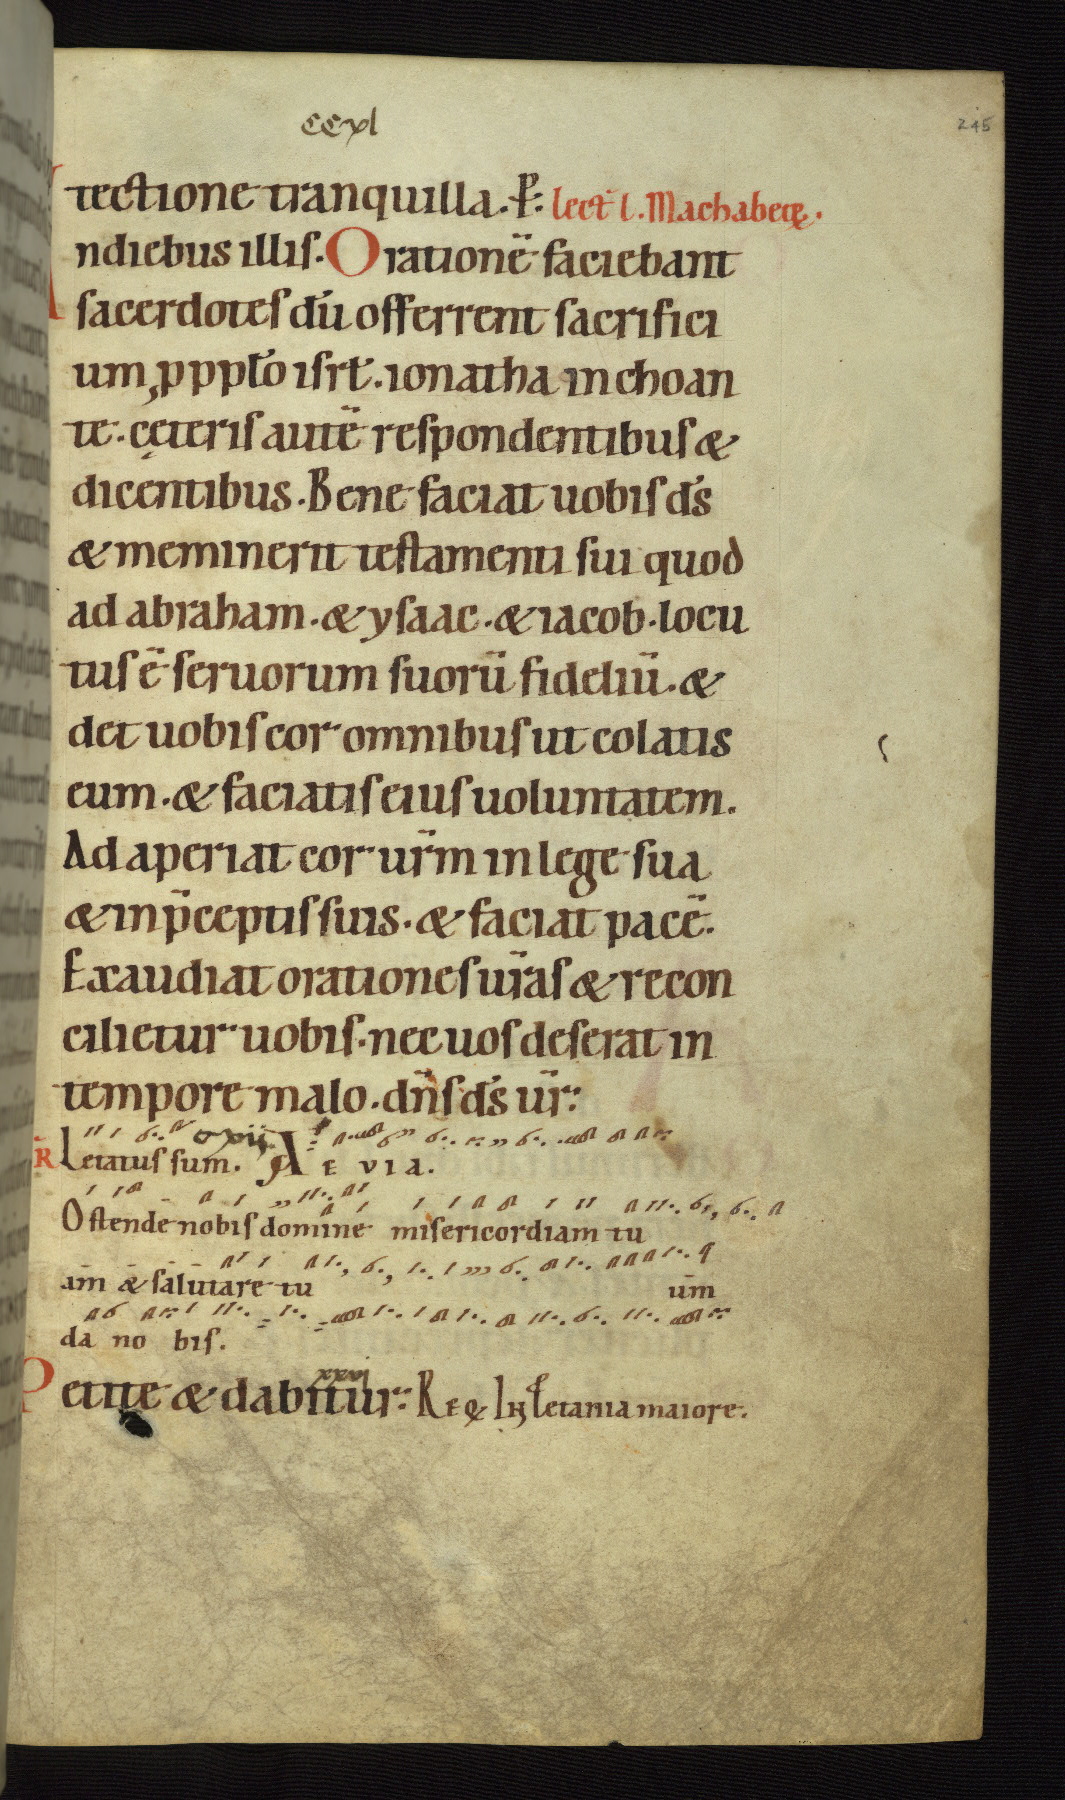 ccxl
245
tectione tranquilla. P̄: lect̄ l. Machabeoꝝ.
Indiebus illis. Orationē faciebant
sacerdotes dū offerrent sacrifici
um, p ppl̄o isrł. ionatha inchoan
te. cęteris autē respondentibus &
dicentibus. Bene faciat uobis d̄s
& meminerit testamenti sui quod
ad abraham. & ysaac. & iacob. locu
tus ē seruorum suorū fideliū. &
det uobis cor omnibus ut colatis
eum. & faciatis eius uoluntatem.
Adaperiat cor ur̄m in lege sua
& in p̄ceptis suis. & faciat pacē.
Exaudiat orationes ur̄as & recon
cilietur uobis. nec uos deserat in
tempore malo. dn̄s d̄s ur̄:
R̄ Letatus sum. cxii A E V I A.
Ostende nobis domine misericordiam tu
am & salutare tu um
da no bis.
xxxi
Petite & dabitur: Rꝫ Eꝙ In letania maiore.